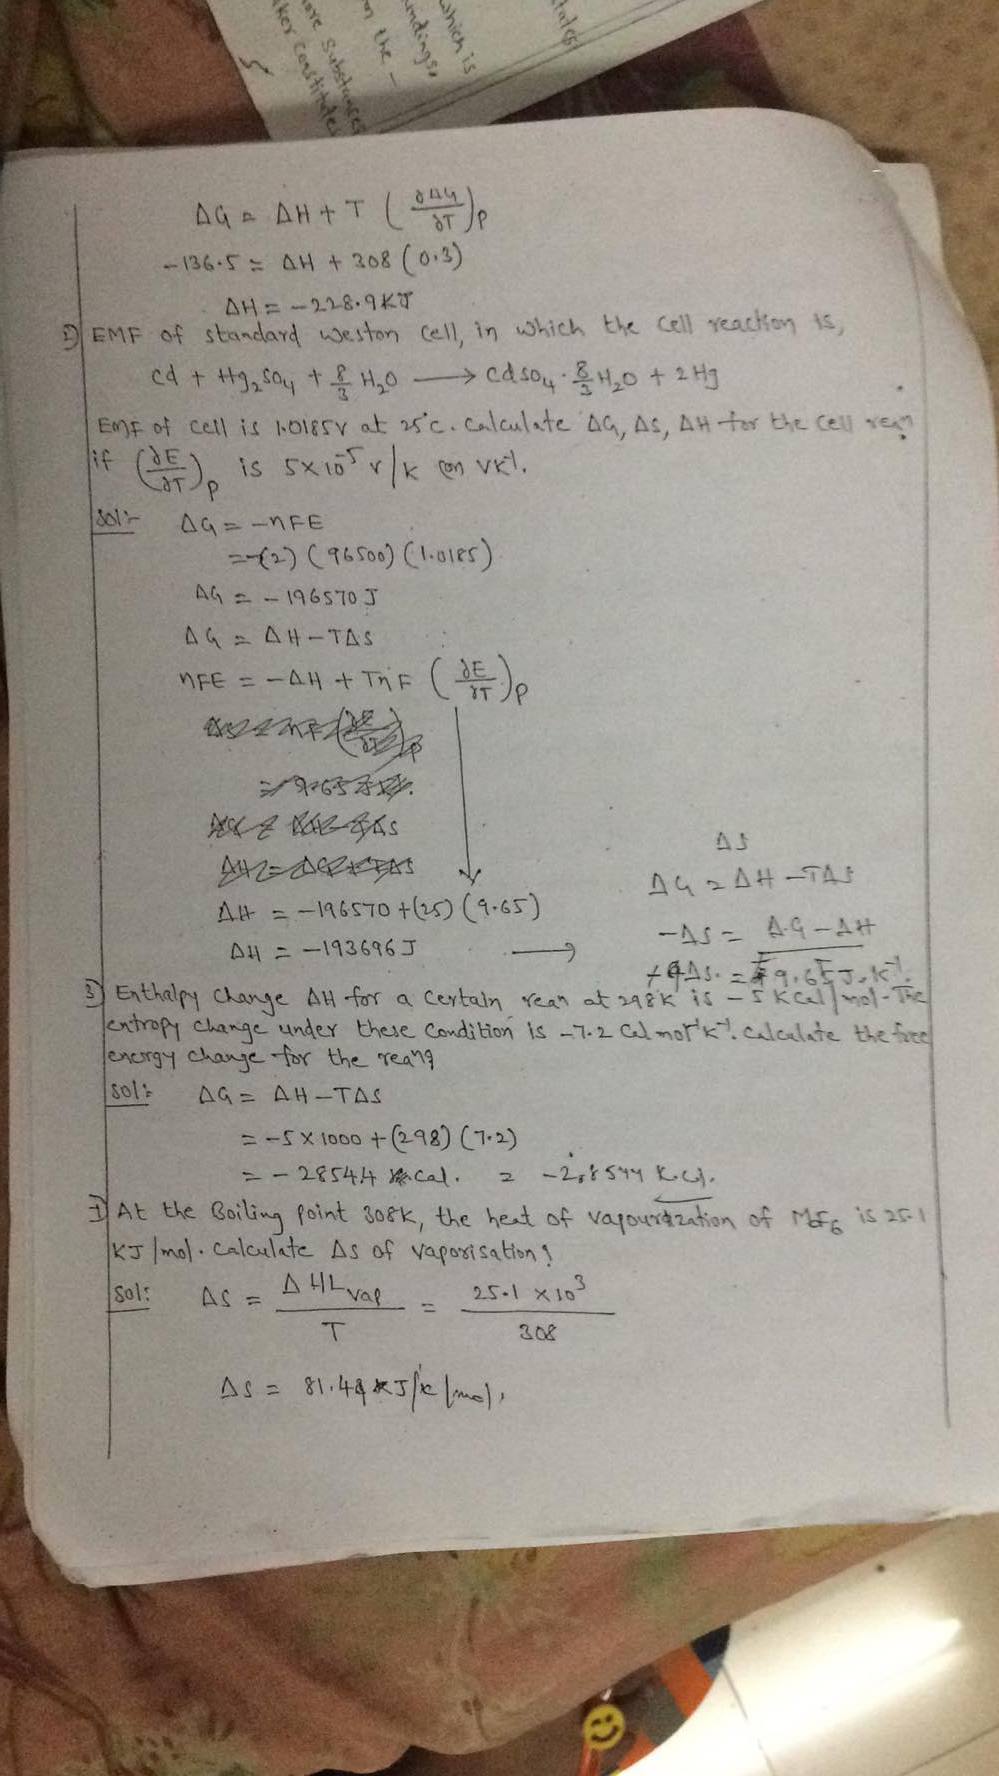 which is
indings,
on the -
ore Substances
ker Constitute
ΔG = ΔH + T (∂ΔG/∂T)p
-136.5 = ΔH + 308 (0.3)
ΔH = -228.9 KJ
EMF of standard weston cell, in which the cell reaction is,
Cd + Hg₂SO₄ + 8/3 H₂O ⟶ CdSO₄ · 8/3 H₂O + 2Hg
EMF of cell is 1.0185V at 25°C. Calculate ΔG, ΔS, ΔH for the cell rean
if (∂E/∂T)p is 5×10⁻⁵ V/K (on VK⁻¹.
Sol:- ΔG = -nFE
= -(2) (96500) (1.0185)
ΔG = -196570 J
ΔG = ΔH - TΔS
nFE = -ΔH + TnF (∂E/∂T)p
ΔH = -196570 + (25) (9.65)
ΔH = -193696 J ⟶
ΔS
ΔG = ΔH - TΔS
-ΔS = ΔG - ΔH / T
ΔS. = 9.65 J. K⁻¹.
3) Enthalpy change ΔH for a certain rean at 298K is -5 KCal/mol. The
entropy change under these Condition is -7.2 Cal mol⁻¹K⁻¹. Calculate the free
energy change for the rean?
Sol: ΔG = ΔH - TΔS
= -5 × 1000 + (298) (7.2)
= -2854.4 cal. = -2.8544 K.Cal.
At the Boiling Point 308K, the heat of vapourization of MoF₆ is 25.1
KJ/mol. Calculate ΔS of vaporisation?
Sol: ΔS = ΔHLvap / T = 25.1 × 10³ / 308
ΔS = 81.49 J/K/mol.